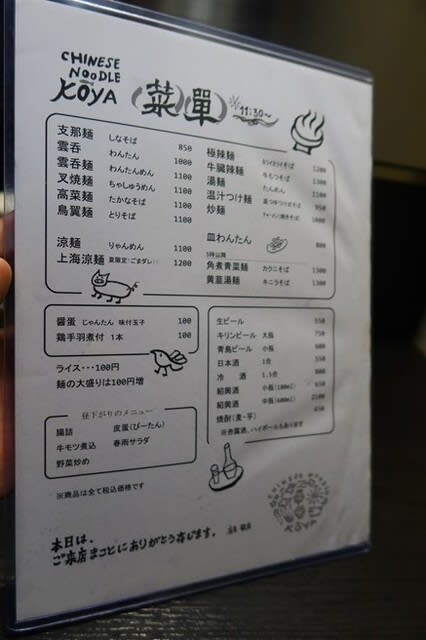 CHINESE
NOODLE
KOYA
(菜)(單) 11:30〜
支那麺 しなそば 850
雲呑 わんたん 1000
雲呑麺 わんたんめん 1100
叉焼麺 ちゃしゅうめん 1100
高菜麺 たかなそば 1100
鳥翼麺 とりそば 1100
涼麺 りゃんめん 1100
上海涼麺 夏限定!ごまダレ!! 1200
極辣麺 カライカライそば 1200
牛臓辣麺 牛もつそば 1300
湯麺 たんめん 1100
温汁つけ麺 温つゆつけそば 950
炒麺 1000
皿わんたん 800
5時以降
角煮青菜麺 カクニそば 1300
黄韮湯麺 キニラそば 1300
醤蛋 じゃんたん 味付玉子 100
鶏手羽煮付 1本 100
ライス・・・100円
麺の大盛りは100円増
昼下がりのメニュー
腸詰 皮蛋(ぴーたん)
牛モツ煮込 春雨サラダ
野菜炒め
生ビール 550
キリンビール 大瓶 750
青島ビール 小瓶 600
日本酒 1合 550
冷酒 1.5合 800
紹興酒 小瓶(180ml) 650
紹興酒 中瓶(600ml) 2100
焼酎(麦・芋) 450
※杏露酒、ハイボールもあります
※商品は全て税込価格です
本日は、
ご来店まことにありがとう存じます。 店主
KOYA